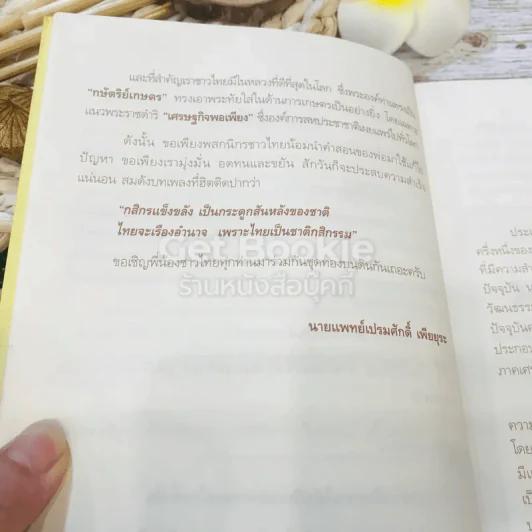 และที่สำคัญเราชาวไทยมีในหลวงที่ดีที่สุดในโลก ซึ่งพระองค์ท่านทรงเป็น
"กษัตริย์เกษตร" ทรงเอาพระทัยใส่ในด้านการเกษตรเป็นอย่างยิ่ง โดยเฉพาะ
แนวพระราชดำริ "เศรษฐกิจพอเพียง" ซึ่งองค์การสหประชาชาติเผยแพร่ไปทั่วโลก
ดังนั้น ขอเพียงพสกนิกรชาวไทยน้อมนำคำสอนของพ่อมาใช้แก้ไข
ปัญหา ขอเพียงเรามุ่งมั่น อดทนและขยัน สักวันก็จะประสบความสำเร็จ
แน่นอน สมดังบทเพลงที่ฮิตติดปากว่า
"กสิกรแข็งขลัง เป็นกระดูกสันหลังของชาติ
ไทยจะเรืองอำนาจ เพราะไทยเป็นชาติกสิกรรม"
Get Bookie
ขอเชิญพี่น้องชาวไทยทุกท่านมาร่วมกันขุดทองบนดินกันเถอะครับ
ร้านหนังสือบุ๊คกี้
นายแพทย์เปรมศักดิ์ เพียยุระ
ประเ
ครึ่งหนึ่งของ
ที่มีความส
ปัจจุบัน น
วัฒนธรร
ปัจจุบันค
ประกอบ
ภาคเศร
ความ
โดย
มีแ
เป็